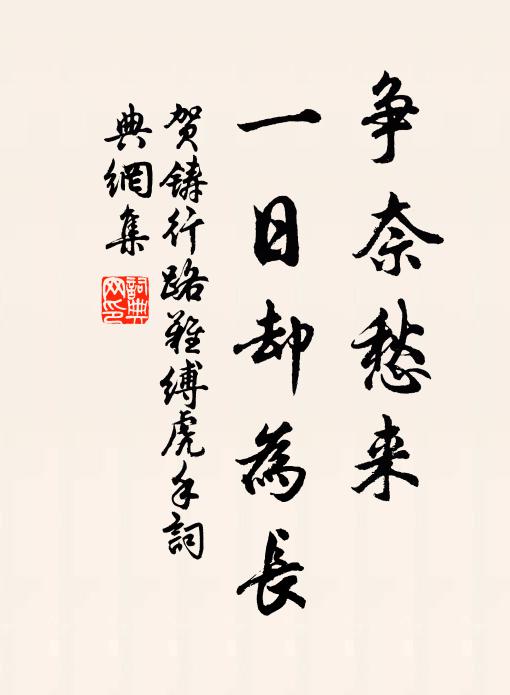 争奈愁来
一日却為長
贺鑄行路難缚虎手詞
典網集
詞典网印